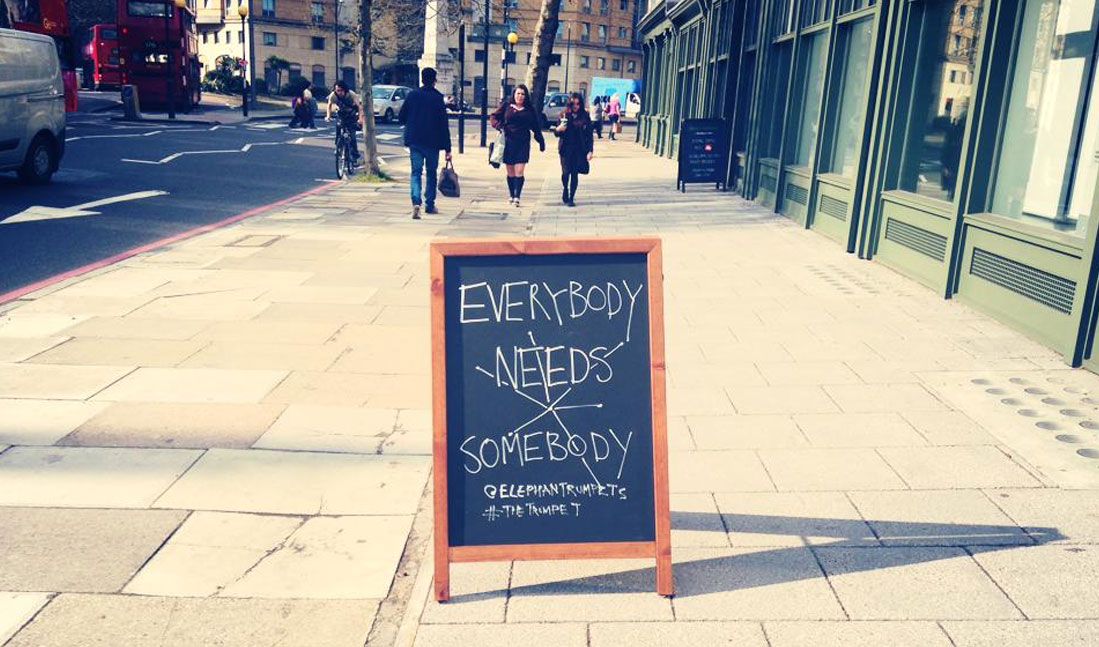 EVERYBODY
NEEDS
SOMEBODY
@ELEPHANTRUMPETS
#THETRUMPET